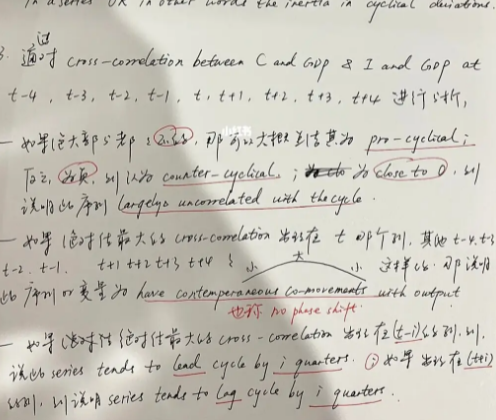 in a series OR in other words the inertia in cyclical deviations.
3. 通过对 cross-correlation between C and GDP & I and GDP at
t-4, t-3, t-2, t-1, t, t+1, t+2, t+3, t+4 进行分析,
— 如果绝大部分都 正的, 那 可以大概 其为 pro-cyclical;
反之, 为负, 则认为 counter-cyclical; 为 close to 0, 则
说明此序列 largely uncorrelated with the cycle.
— 如果绝对值最大的 cross-correlation 出现在 t 那个列, 其他 t-4. t-3
t-2. t-1. t+1 t+2 t+3 t+4 小 大 小 这样的, 那说明
此序列 or 变量为 have contemporaneous co-movements with output
也称 no phase shift.
— 如果 绝对值最大的 cross-correlation 出现在 (t-i) 的列, 则
说此 series tends to lead cycle by i quarters. ② 如果出现在 (t+i)
的列, 则说明 series tends to lag cycle by i quarters.